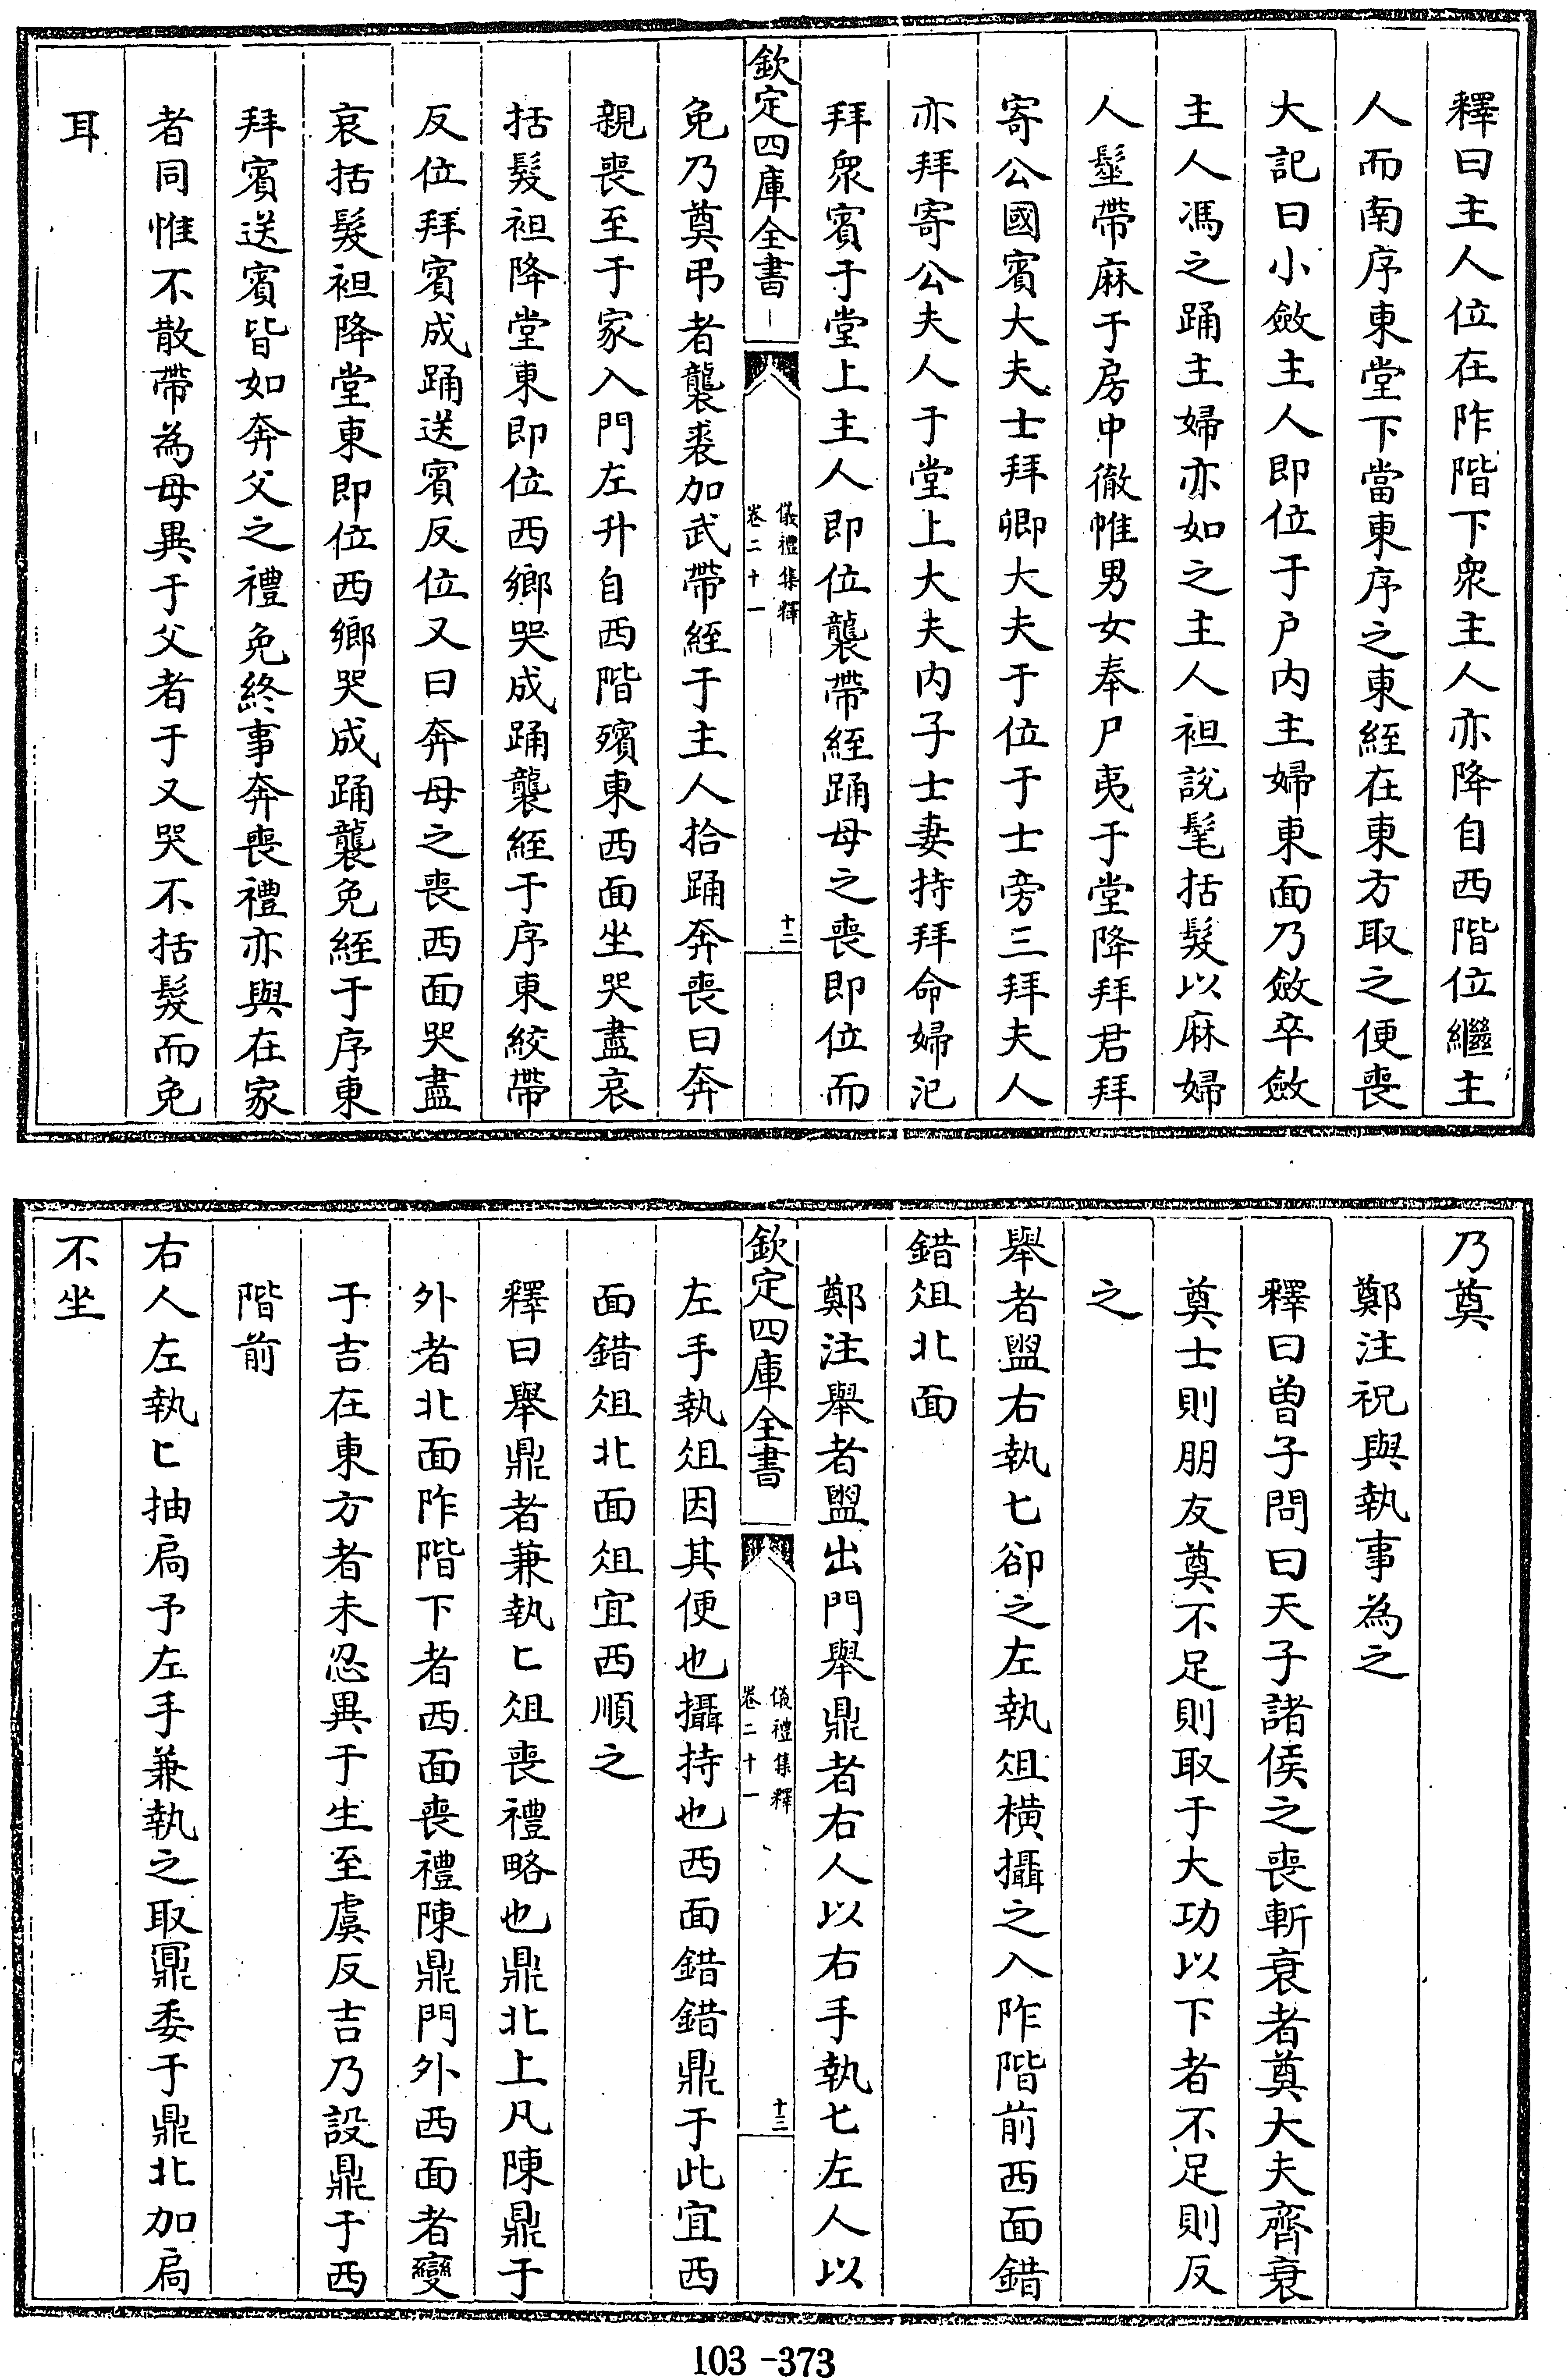 釋曰主人位在阼階下衆主人亦降自西階位繼主
人而南序東堂下當東序之東絰在東方取之便喪
大記曰小斂主人即位于户内主婦東面乃斂卒斂
主人馮之踊主婦亦如之主人袒說髦括髮以麻婦
人髽帶麻于房中徹帷男女奉尸夷于堂降拜君拜
寄公國賓大夫士拜卿大夫于位于士旁三拜夫人
亦拜寄公夫人于堂上大夫内子士妻持拜命婦汜
拜衆賓于堂上主人即位襲帶絰踊母之喪即位而
欽定四庫全書
儀禮集釋
卷二十一
十二
免乃奠弔者襲裘加武帶絰于主人拾踊奔喪曰奔
親喪至于家入門左升自西階殯東西面坐哭盡哀
括髮袒降堂東即位西鄉哭成踊襲絰于序東絞帶
反位拜賓成踊送賓反位又曰奔母之喪西面哭盡
哀括髮袒降堂東即位西鄉哭成踊襲免絰于序東
拜賓送賓皆如奔父之禮免終事奔喪禮亦與在家
者同惟不散帶為母異于父者于又哭不括髮而免
耳
乃奠
鄭注祝與執事為之
釋曰曾子問曰天子諸侯之喪斬衰者奠大夫齊衰
奠士則朋友奠不足則取于大功以下者不足則反
之
舉者盥右執匕卻之左執俎橫攝之入阼階前西面錯
錯俎北面
鄭注舉者盥出門舉鼎者右人以右手執匕左人以
欽定四庫全書
儀禮集釋
卷二十一
十三
左手執俎因其便也攝持也西面錯錯鼎于此宜西
面錯俎北面俎宜西順之
釋曰舉鼎者兼執匕俎喪禮略也鼎北上凡陳鼎于
外者北面阼階下者西面喪禮陳鼎門外西面者變
于吉在東方者未忍異于生至虞反吉乃設鼎于西
階前
右人左執匕抽扃予左手兼執之取鼏委于鼎北加扃
不坐
103-373